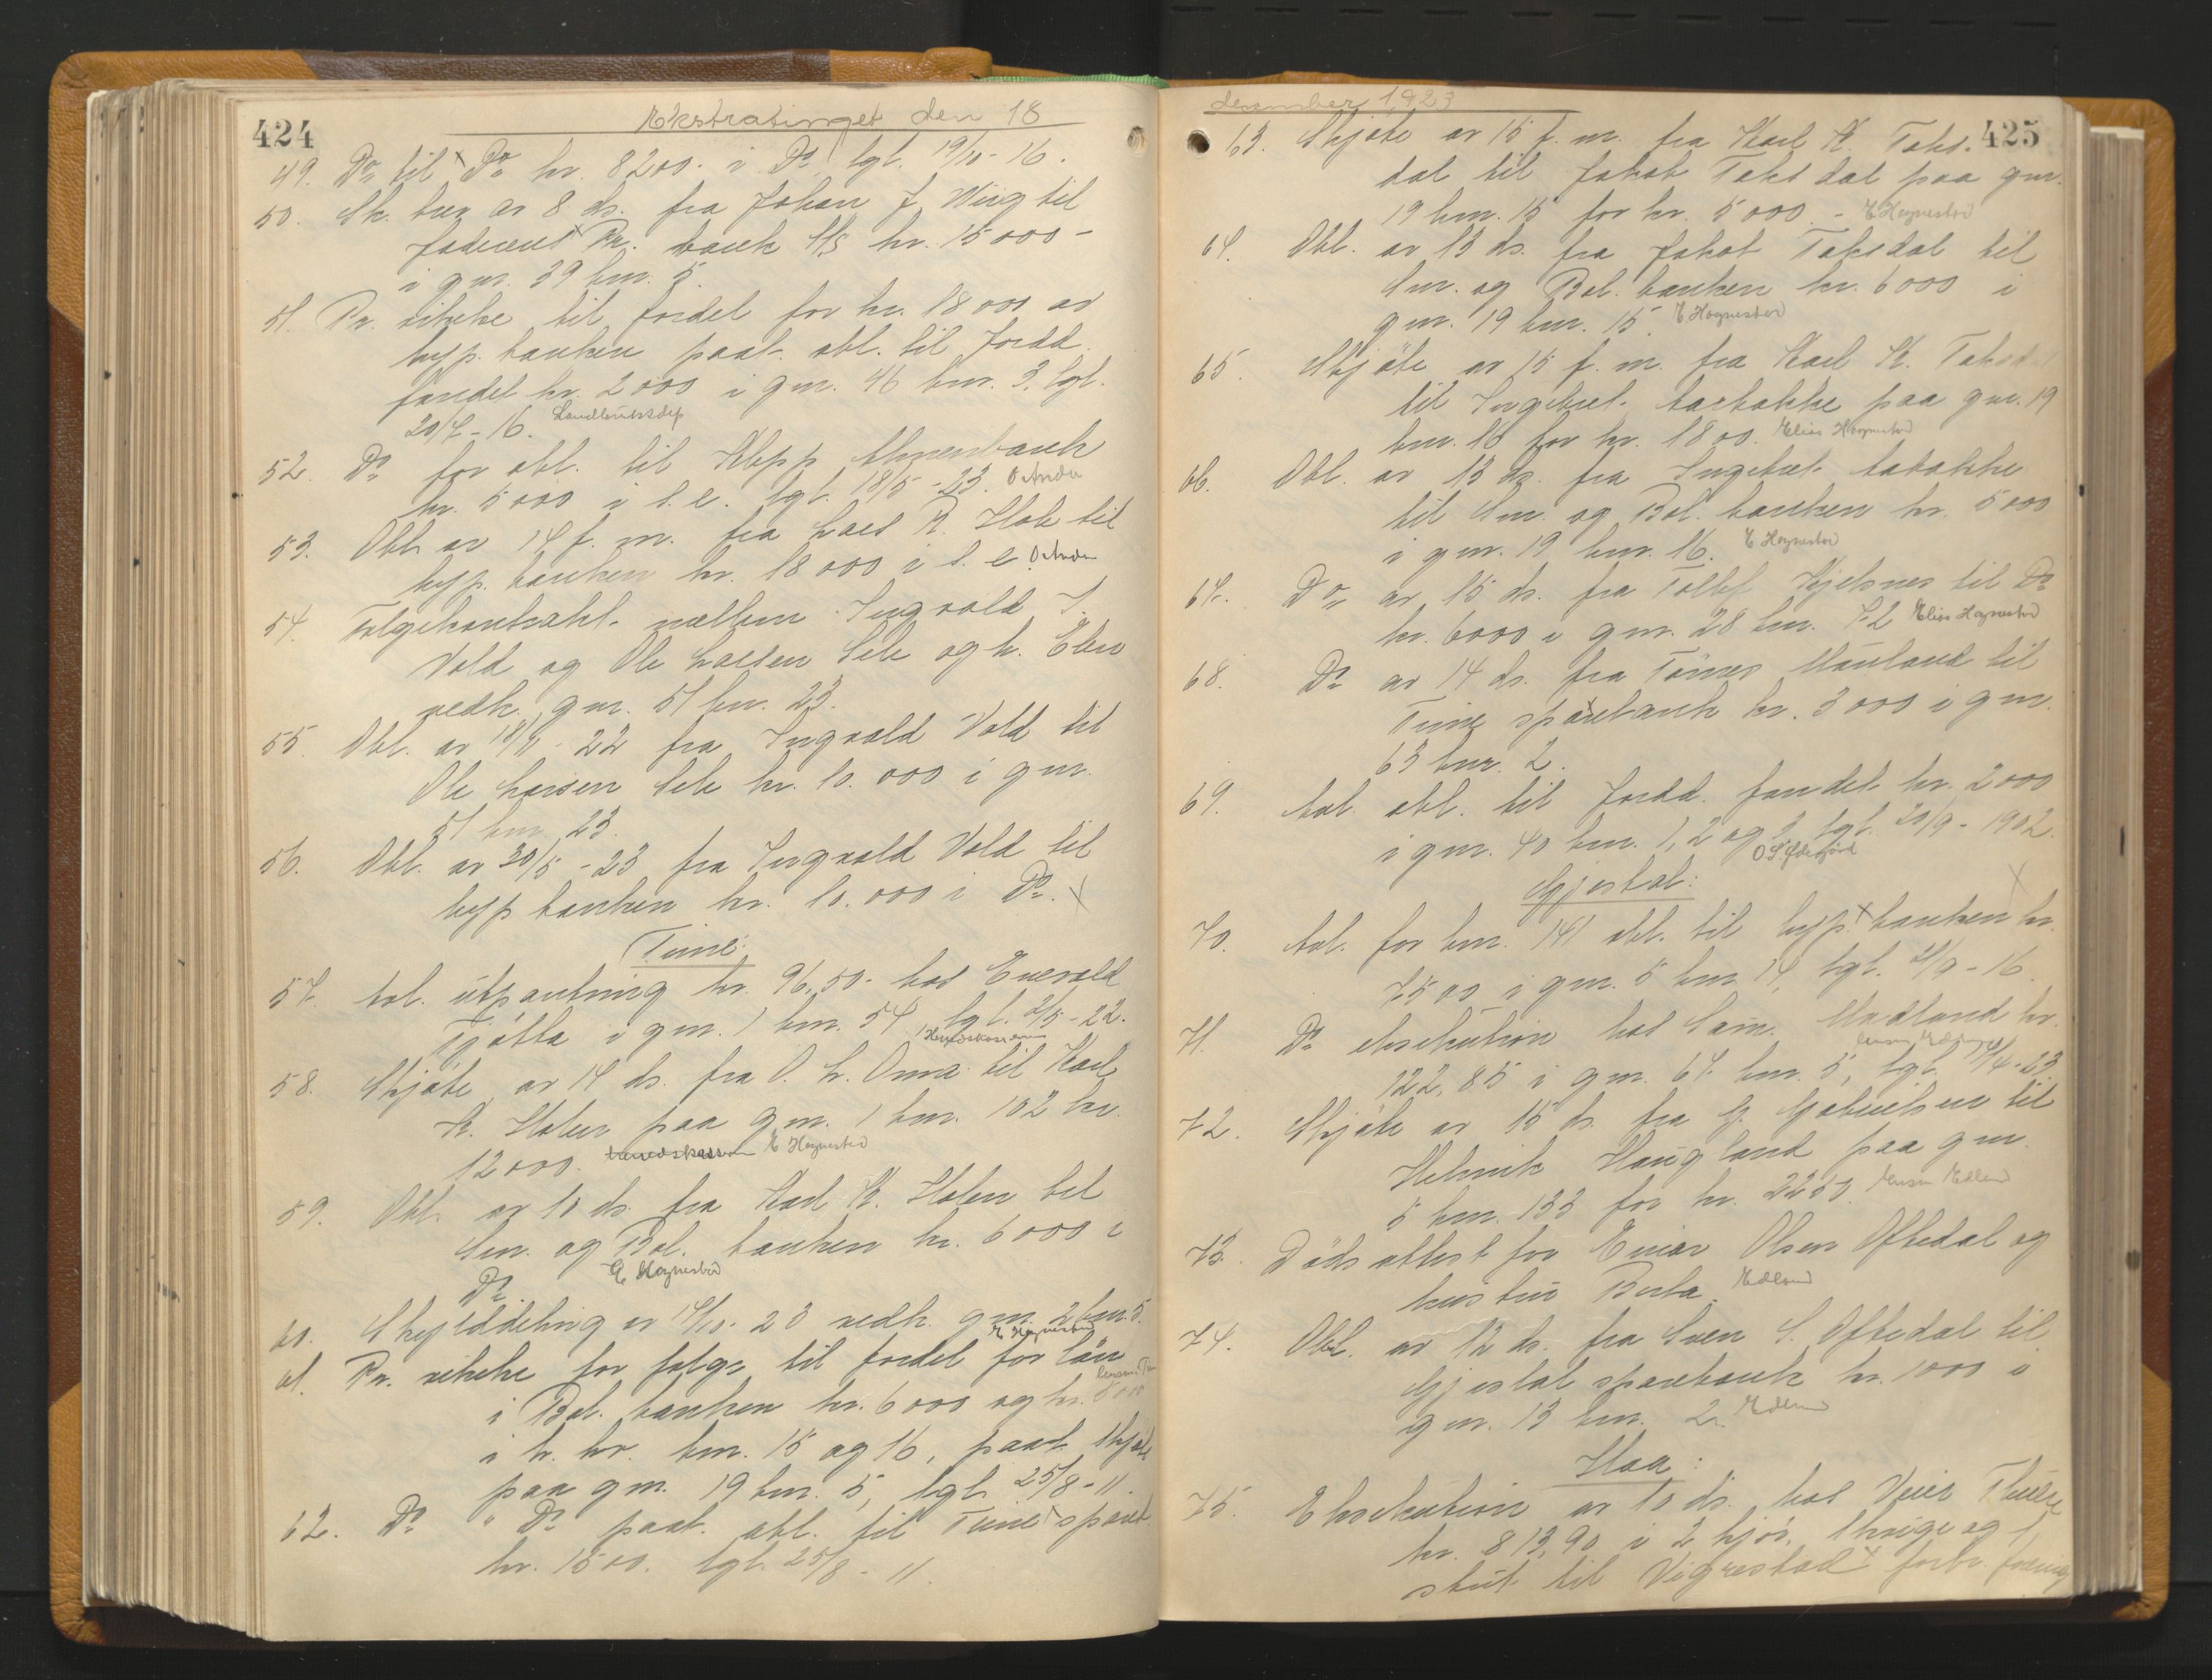 424
Ekstratinget den 18
49. Do til Do kr. 8200.- i Do, tgl. 19/10-16.
50. Sk. brev av 8 ds. fra Johan J. Wiig til
Jæderens Pr. bank A/S kr. 15000-
i gnr. 39 bnr. 5.
51. Pr. vikelse til fordel for kr. 18000 av
hyp. banken paat. obl. til Jordd.
fondet kr. 2000 i gnr. 46 bnr. 3, tgl.
20/7-16. Landbruksdep
52. Do for obl. til Klepp Almenbank
kr. 5000 i s. e. tgl. 18/5-23.
53. Obl. av 14 f. m. fra Lars R. Hole til
hyp. banken kr. 18000 i s. e.
54. Følgekontrakt mellem Ingvald I.
Vold og Ole Larsen Sele og h. Elen
vedk. gnr. 51 bnr. 23.
55. Obl. av 18/11-22 fra Ingvald Vold til
Ole Larsen Sele kr. 10.000 i gnr.
51 bnr. 23.
56. Obl. av 30/5-23 fra Ingvald Vold til
hyp banken kr. 10.000 i Do.
Time:
57. Avl. utpantning kr. 96,50- hos Enevald
Tjøtta i gnr. 1 bnr. 54, tgl. 2/5-22.
Herredskassereren
58. Skjøte av 14 ds. fra O. L. Orra til Karl
K. Holen paa gnr. 1 bnr. 102 kr.
12000. E Hognestad
59. Obl. av 10 ds. fra Karl K. Holen til
Sm. og Bol. banken kr. 6000 i
Do. E Hognestad
60. Skylddeling av 19/10-23 vedk. gnr. 2 bnr. 5.
E Hognestad
61. Pr. vikelse for følge til fordel for lån
i Bol. banken kr. 6000 og kr. 5000
i h. hv. bnr. 15 og 16, paat. skjøte
paa gnr. 19 bnr. 5, tgl. 25/8-11.
62. Do " Do paat. obl. til Time spareb.
kr. 1500. tgl. 25/8-11.
december 1923
425
63. Skjøte av 15 f. m. fra Karl K. Taks-
dal til Jakob Taksdal paa gnr.
19 bnr. 15 for kr. 5000.- E Hognestad
64. Obl. av 13 ds. fra Jakob Taksdal til
Sm. og Bol. banken kr. 6000 i
gnr. 19 bnr. 15. E Hognestad
65. Skjøte av 15 f. m. fra Karl K. Taksd
til Ingebret paa gnr. 19
bnr. 16 for kr. 1800. Elias Hognestad
66. Obl. av 13 ds. fra Ingebret
til Sm. og Bol. banken kr. 5000
i gnr. 19 bnr. 16. E Hognestad
67. Do av 15 ds. fra Tollef Kjelsnes til Do
kr. 6000 i gnr. 28 bnr. 72 Elias Hognestad
68. Do av 14 ds. fra Tønnes Mauland til
Time sparebank kr. 3000 i gnr.
63 bnr. 2.
69. Avl. obl. til Jordd. fondet kr. 2000
i gnr. 40 bnr. 1, 2 og 3, tgl. 20/9-1902.
Gjestal:
70. Avl. for bnr. 141 obl. til hyp. banken kr.
7500 i gnr. 5 bnr. 14, tgl. 21/9-16.
71. Do eksekution hos Sam. Madland kr.
122,85 i gnr. 67 bnr. 5, tgl. 17/4-23
72. Skjøte av 15 ds. fra G. Gabrielsen til
Helmik Haugland paa gnr.
5 bnr. 133 for kr. 2250. Edland
73. Dødsattest for Einar Olsen Oftedal og
hustru Berta. Edland
74. Obl. av 12 ds. fra Sven S. Oftedal til
Gjestal sparebank kr. 1000 i
gnr. 13 bnr. 2. Edland
Haa:
75. Eksekution av 10 ds. hos
kr. 813,90 i 2 kjør, 1 kvige og 1
stut til Vigrestad forbr. forening